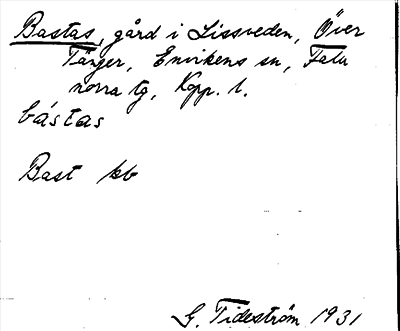 Bastas, gård i Lissveden, Över
Tänger, Envikens sn, Falu
norra tg, Kopp. l.
bástas
Bast kb
G. Tideström 1931